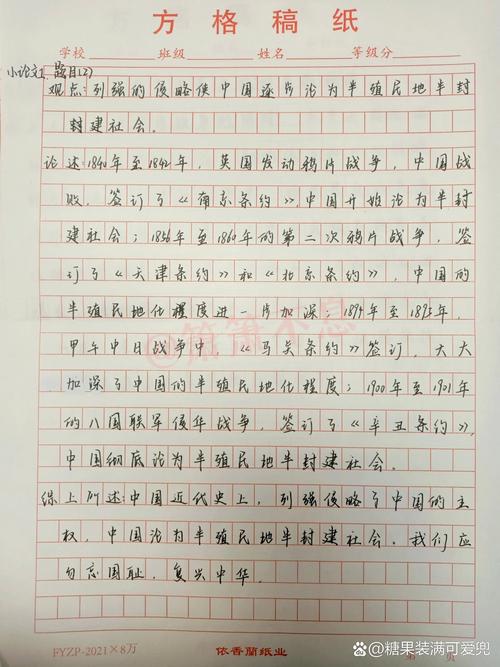 方格稿纸
学校 班级 姓名 等级分
小论文1. 题目(2)
观点:列强的侵略使中国逐步沦为半殖民地半封
封建社会。
论述:1840年至1842年,英国发动鸦片战争,中国战
败,签订了《南京条约》,中国开始沦为半封
建社会;1856年至1860年的第二次鸦片战争,签
订了《天津条约》和《北京条约》,中国的
半殖民地化程度进一步加深;1894年至1895年,
甲午中日战争中,《马关条约》签订,大大
加深了中国的半殖民地化程度;1900年至1901年
的八国联军侵华战争,签订了《辛丑条约》,
中国彻底沦为半殖民地半封建社会。
综上所述:中国近代史上,列强侵略了中国的主
权,中国沦为半殖民地半封建社会。我们应
勿忘国耻,复兴中华.
FYZP-2021×8万 依香蘭纸业 第 页
头条 @糖果装满可爱兜